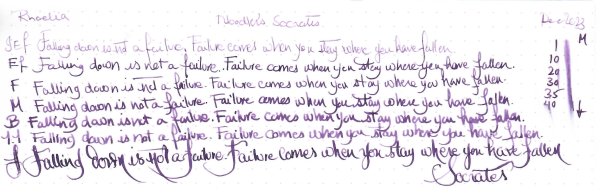 Rhodia Noodler's Socrates Dec 2023
EEf Falling down is not a failure. Failure comes when you stay where you have fallen.
Ef Falling down is not a failure. Failure comes when you stay where you have fallen.
F Falling down is not a failure. Failure comes when you stay where you have fallen.
M Falling down is not a failure. Failure comes when you stay where you have fallen.
B Falling down isn't a failure. Failure comes when you stay where you have fallen.
1.1 Falling down is not a failure. Failure comes when you stay where you have fallen.
Falling down is not a failure. Failure comes when you stay where you have fallen
Socrates
M
1
10
20
30
35
40